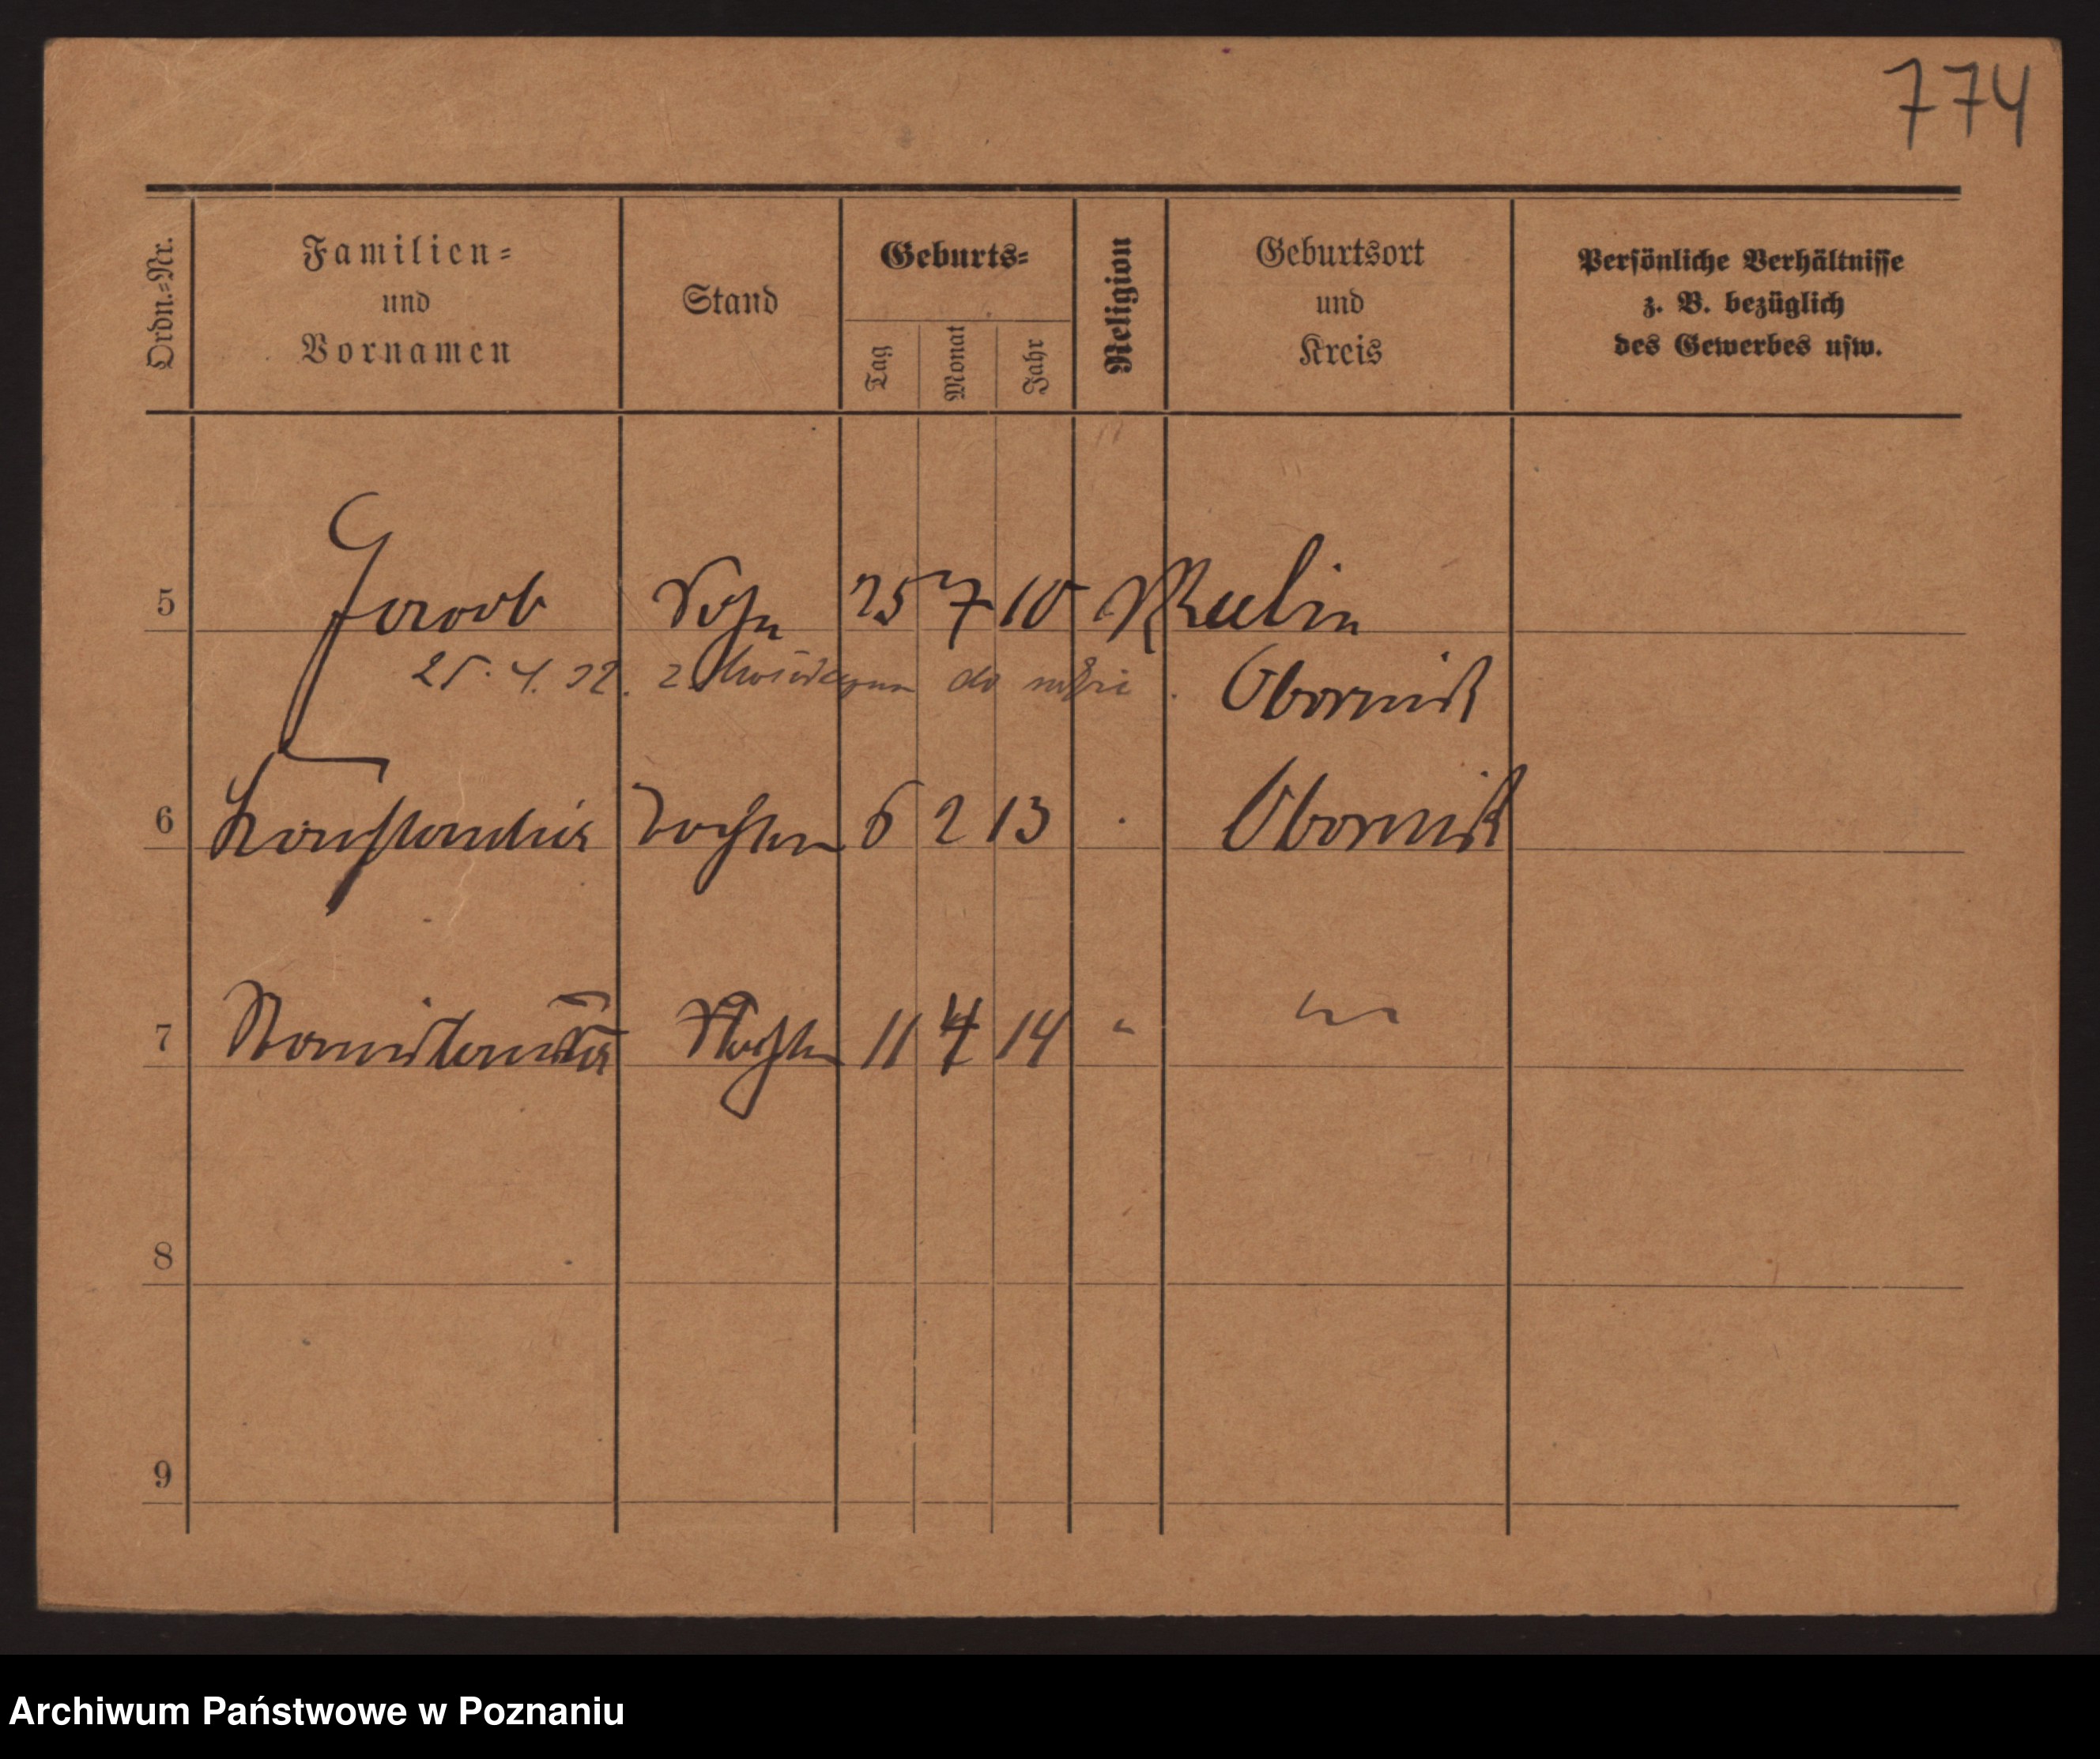 774
Ordn.=Nr.
Familien=
und
Vornamen
Stand
Geburts=
Tag
Monat
Jahr
Religion
Geburtsort
und
Kreis
Persönliche Verhältnisse
z. B. bezüglich
des Gewerbes usw.
5 Jacob Sohn 25 7 10
25. 4. 32. z do Obornik
6 Konstantia Tochter 6 2 13 Obornik
7 Tochter 11 4 14 "
8
9
Archiwum Państwowe w Poznaniu